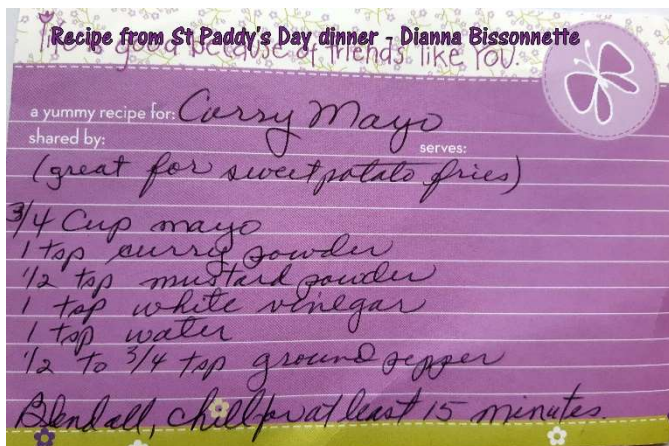 Recipe from St Paddy's Day dinner - Dianna Bissonnette
good because of friends like YOU.
a yummy recipe for: Curry Mayo
shared by:
serves:
(great for sweet potato fries)
3/4 Cup mayo
1 tsp curry powder
1/2 tsp mustard powder
1 tsp white vinegar
1 tsp water
1/2 to 3/4 tsp ground pepper
Blend all, chill for at least 15 minutes.